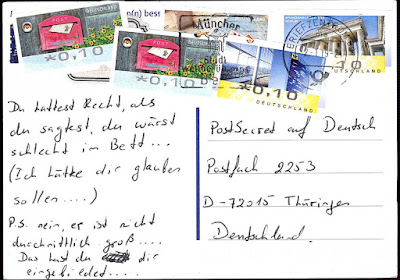 n) bess
München
POST
POST
BRIEFZENTRUM
*0,10
*0,10
*0,10
10
DEUTSCHLAND
UTSCHLAND
Du hattest Recht, als
du sagtest, du wärst
schlecht im Bett...
(Ich hätte dir glauben
sollen....)
P.S. nein, er ist nicht
duschnittlich groß....
Das hast du dir
eingebildet....
PostSecret auf Deutsch
Postfach 2253
D-72015 Thüringen
Deutschland.